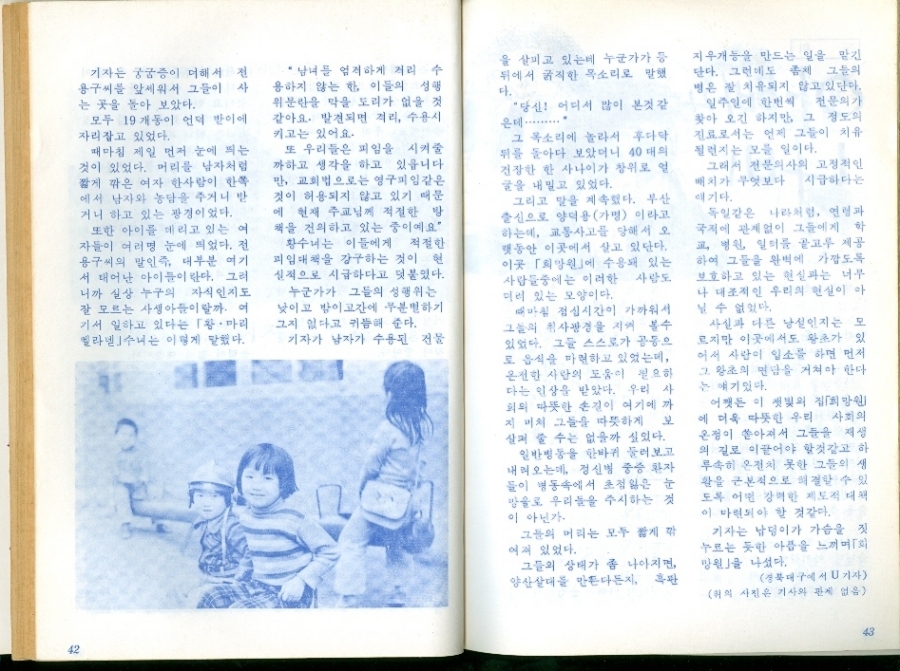 기자는 궁금증이 더해서 전
용구씨를 앞세워서 그들이 사
는 곳을 돌아 보았다.
모두 19개동이 언덕 밭이에
자리잡고 있었다.
때마침 제일 먼저 눈에 띄는
것이 있었다. 머리를 남자처럼
짧게 깎은 여자 한사람이 한쪽
에서 남자와 농담을 주거니 받
거니 하고 있는 광경이었다.
또한 아이를 데리고 있는 여
자들이 여러명 눈에 띄었다. 전
용구씨의 말인즉, 대부분 여기
서 태어난 아이들이란다. 그러
니까 실상 누구의 자식인지도
잘 모르는 사생아들이랄까. 여
기서 일하고 있다는 「왕·마리
힐라넬」수녀는 이렇게 말했다.
"남녀를 엄격하게 격리 수
용하지 않는 한, 이들의 성행
위문란을 막을 도리가 없을 것
같아요. 발견되면 격리, 수용시
키고는 있어요.
또 우리들은 피임을 시켜줄
까하고 생각을 하고 있읍니다
만, 교회법으로는 영구피임같은
것이 허용되지 않고 있기 때문
에 현재 주교님께 적절한 방
책을 건의하고 있는 중이예요"
황수녀는 이들에게 적절한
피임대책을 강구하는 것이 현
실적으로 시급하다고 덧붙였다.
누군가가 그들의 성행위는
낮이고 밤이고간에 무분별하기
그지 없다고 귀뜸해 준다.
기자가 남자가 수용된 건물
42
을 살피고 있는데 누군가가 등
뒤에서 굵직한 목소리로 말했
다.
"당신! 어디서 많이 본것같
은데………"
그 목소리에 놀라서 후다닥
뒤를 돌아다 보았더니 40대의
건장한 한 사나이가 창위로 얼
굴을 내밀고 있었다.
그리고 말을 계속했다. 부산
출신으로 양덕용(가명) 이라고
하는데, 교통사고를 당해서 오
랫동안 이곳에서 살고 있단다.
이곳 「희망원」에 수용돼 있는
사람들중에는 이러한 사람도
더러 있는 모양이다.
때마침 점심시간이 가까워서
그들의 취사광경을 지켜 볼수
있었다. 그들 스스로가 공동으
로 음식을 마련하고 있었는데,
온전한 사람의 도움이 필요하
다는 인상을 받았다. 우리 사
회의 따뜻한 손길이 여기에 까
지 미쳐 그들을 따뜻하게 보
살펴 줄 수는 없을까 싶었다.
일반병동을 한바퀴 둘러보고
내려오는데, 정신병 중증 환자
들이 병동속에서 초점잃은 눈
망울로 우리들을 주시하는 것
이 아닌가.
그들의 머리는 모두 짧게 깎
여져 있었다.
그들의 상태가 좀 나아지면,
양산살대를 만든다든지, 흑판
지우개등을 만드는 일을 맡긴
단다. 그런데도 좀체 그들의
병은 잘 치유되지 않고 있단다.
일주일에 한번씩 전문의가
찾아 오긴 하지만, 그 정도의
진료로서는 언제 그들이 치유
될런지는 모를 일이다.
그래서 전문의사의 고정적인
배치가 무엇보다 시급하다는
얘기다.
독일같은 나라처럼, 연령과
국적에 관계없이 그들에게 학
교, 병원, 일터를 골고루 제공
하여 그들을 완벽에 가깝도록
보호하고 있는 현실과는 너무
나 대조적인 우리의 현실이 아
닐 수 없었다.
사실과 다른 낭설인지는 모
르지만 이곳에서도 왕초가 있
어서 사람이 입소를 하면 먼저
그 왕초의 면담을 거쳐야 한다
는 얘기있다.
어쨋든 이 잿빛의 집「희망원」
에 더욱 따뜻한 우리 사회의
온정이 쏟아져서 그들을 재생
의 길로 이끌어야 할것같고 하
루속히 온전치 못한 그들의 생
활을 근본적으로 해결할 수 있
도록 어떤 강력한 제도적 대책
이 마련되야 할 것같다.
기자는 납덩이가 가슴을 짓
누르는 듯한 아픔을 느끼며「희
망원」을 나섰다.
(경북대구에서 U기자)
(위의 사진은 기사와 관계 없음)
43